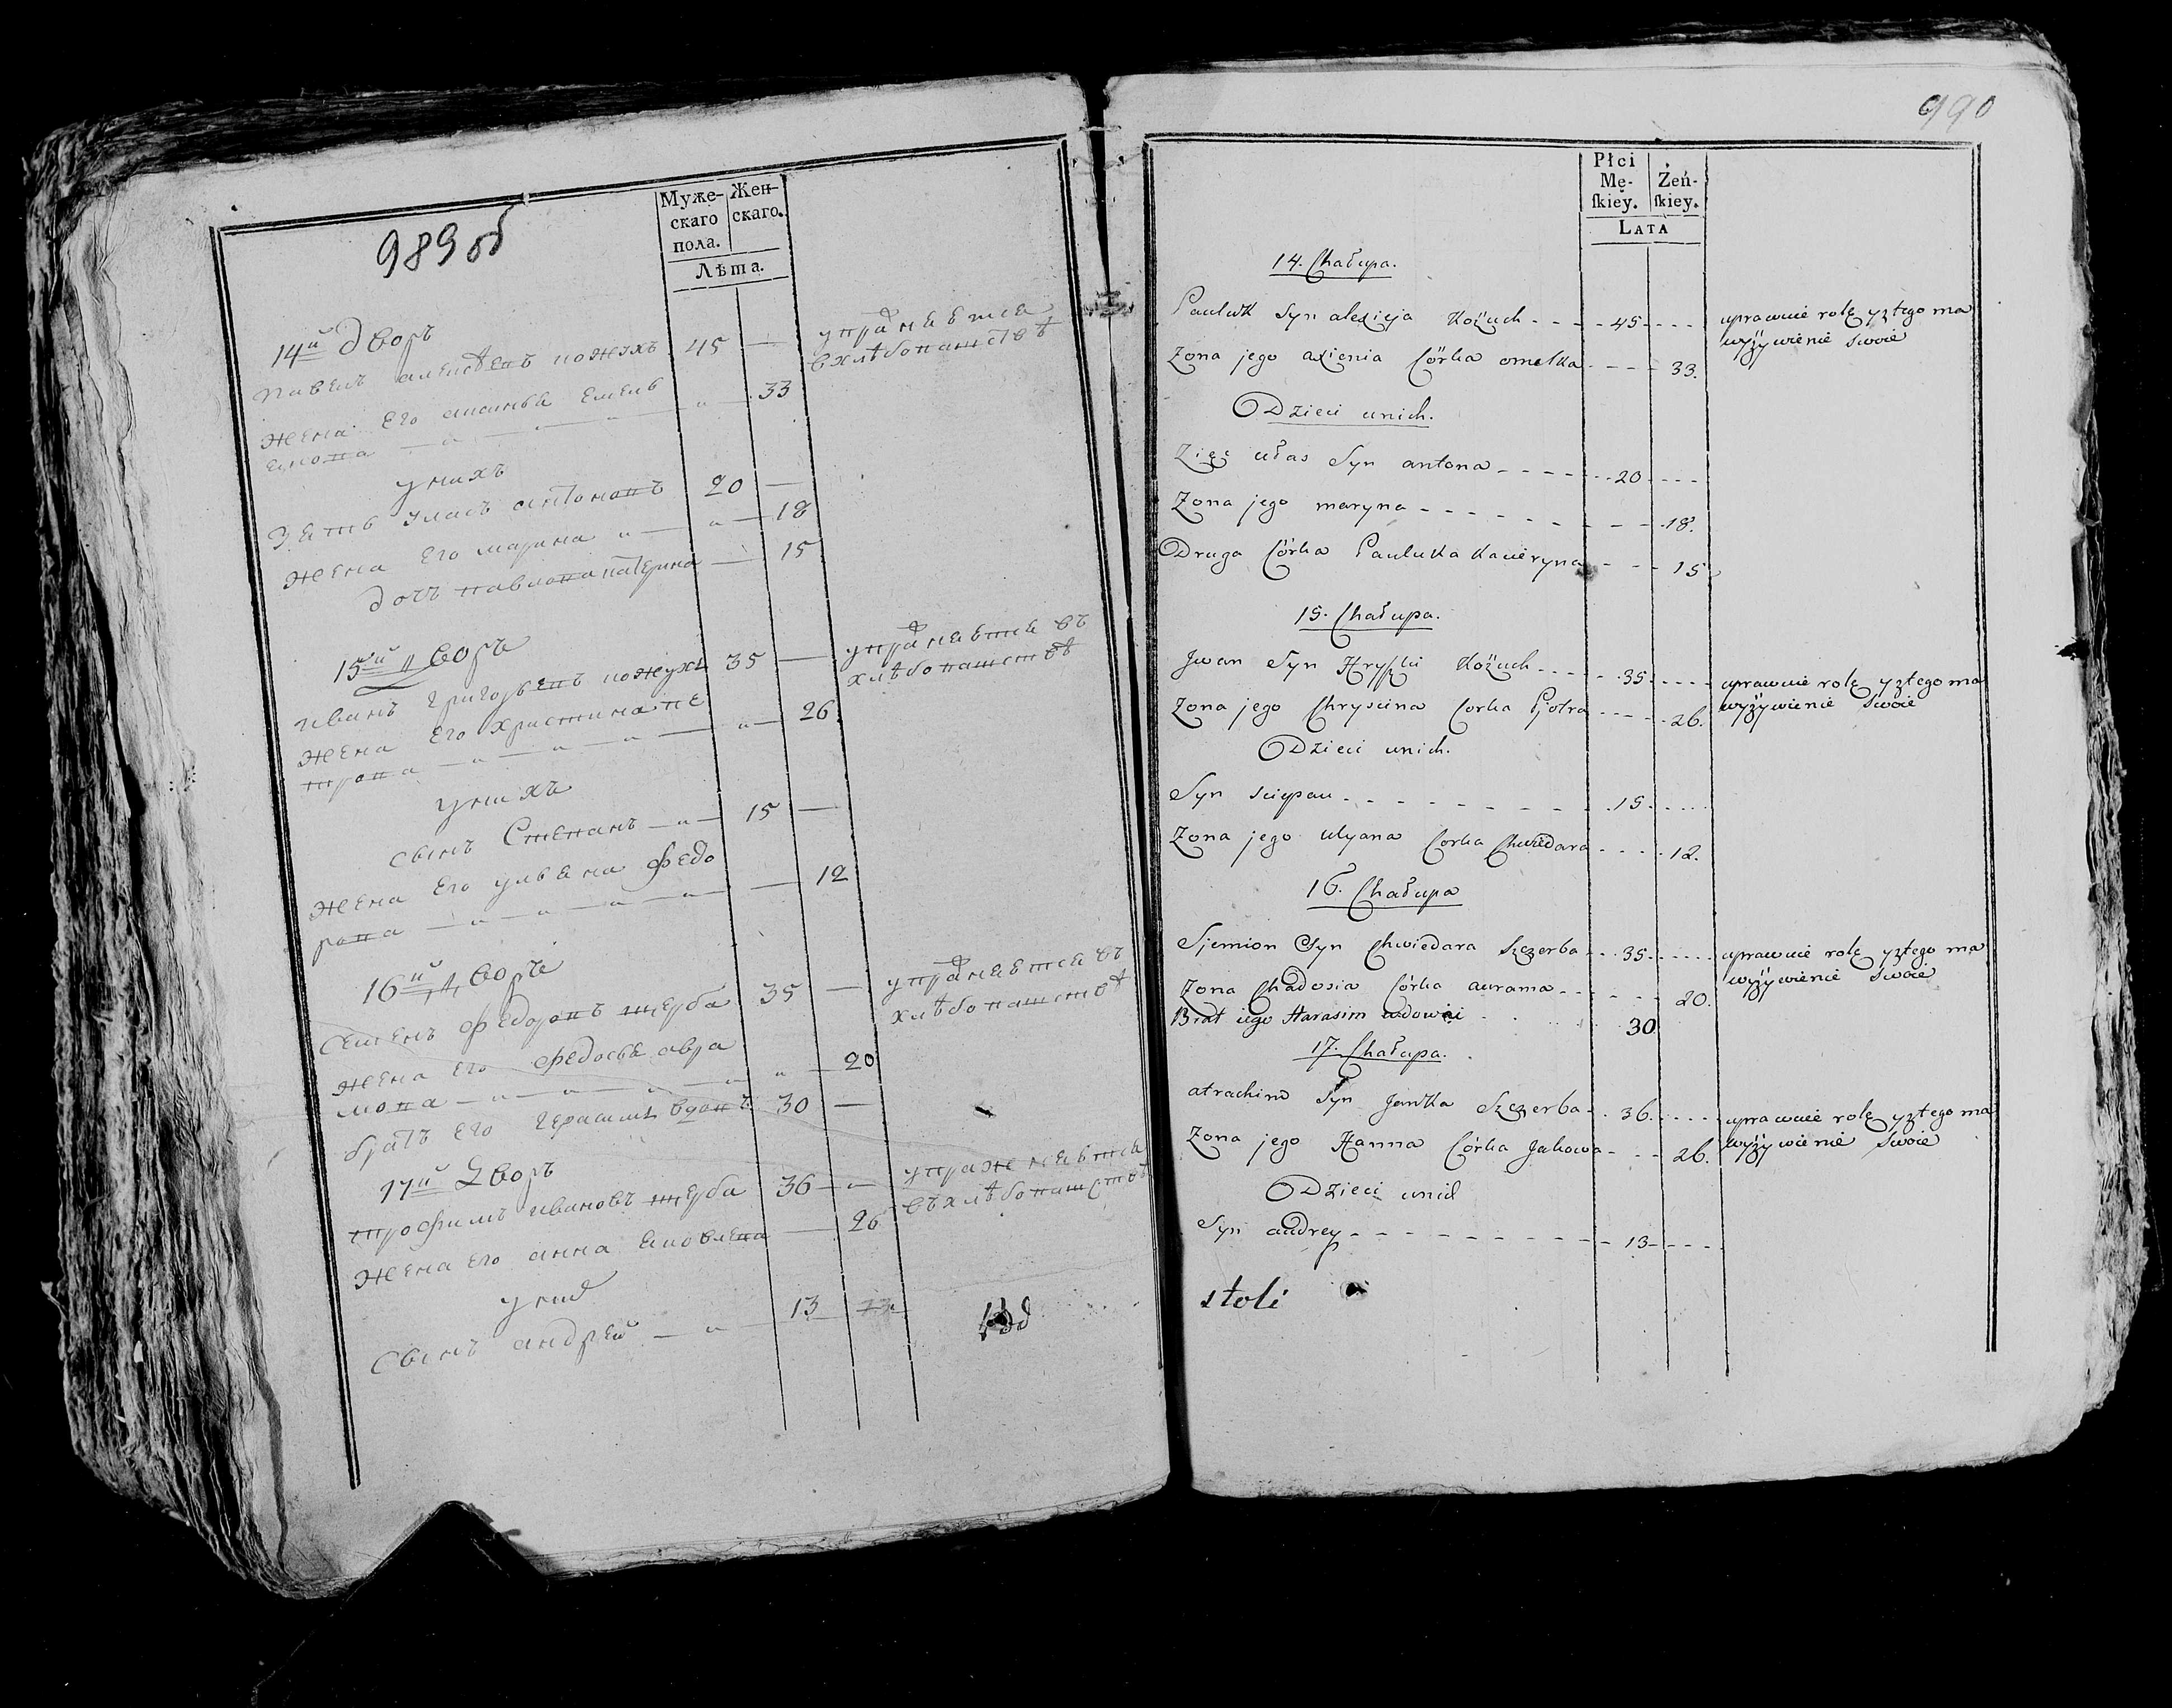 989об
Муже-
скаго
пола.
Жен-
скаго.
Лѣта.
14й дворъ
Павелъ Алексѣевъ Кожухъ 45 —
упражняется
въ хлѣбопашествѣ
жена его Аксинья Емель
янова — " — " — " — 33
у нихъ
зять Уласъ Антоновъ 20 —
жена его Марина " — " — 18
дочь Павлова Катерина — 15
15й Дворъ
Иванъ Григорьевъ Кожухъ 35 —
упражняется въ
хлѣбопашествѣ
жена его Христина Пе
трова — " — " — " — 26
у нихъ
сынъ Степанъ — " — 15 —
жена его Ульяна Федо
рова — " — " — " — " — 12
16й Дворъ
Семенъ Федоровъ Щерба 35 —
упражняется въ
хлѣбопашествѣ
жена его Федосья Авра
мова — " — " — " — " — 20
братъ его Герасимъ вдовъ 30 —
17й Дворъ
Трофимъ Ивановъ Щерба 36 — " —
упражняется
въ хлѣбопашествѣ
жена его Анна Яковлева — 26
у них
сынъ Андрей — " — 13
990
Płci
Mę-
ſkiey.
Żeń-
ſkiey.
LATA
14. Chałupa.
Pauluk Syn alexieja Kożuch - - - - 45 - - - -
uprawuie rolę y ztego ma
wyżywienie swoie
Zona jego axienia Córka omelka - - - - 33.
Dzieci unich.
Zięć ułas Syn antona - - - - - 20 - - - -
Zona jego maryna - - - - - - - - - 18.
Druga Córka Pauluka Kaceryna - - - 15
15. Chałupa.
Jwan Syn Hryſzki Kożuch - - - - 35 - - - -
uprawuie rolę y ztego ma
wyżywienie swoie
Zona jego Chryscina Corka Pjotra - - - - 26.
Dzieci unich.
Syn sciepan - - - - - - - - - 15 - - - -
Zona jego ulyana Corka Chwiedara - - - - 12.
16. Chałupa
Sjemion Syn Chwiedara Szczerba - - 35 - - - - -
uprawuie rolę y ztego ma
wyżywienie swoie
Zona Chadosia Córka aurama - - - - - - 20.
Brat iego Harasim wdowiei 30
17. Chałupa.
atrachim Syn Jantka Szczerba - - 36 - - - -
uprawuie rolę y ztego ma
wyżywienie swoie
Zona jego Hanna Córka Jakowa - - - 26.
Dzieci unich
Syn andrey - - - - - - - - - - 13 - - - -
stoli